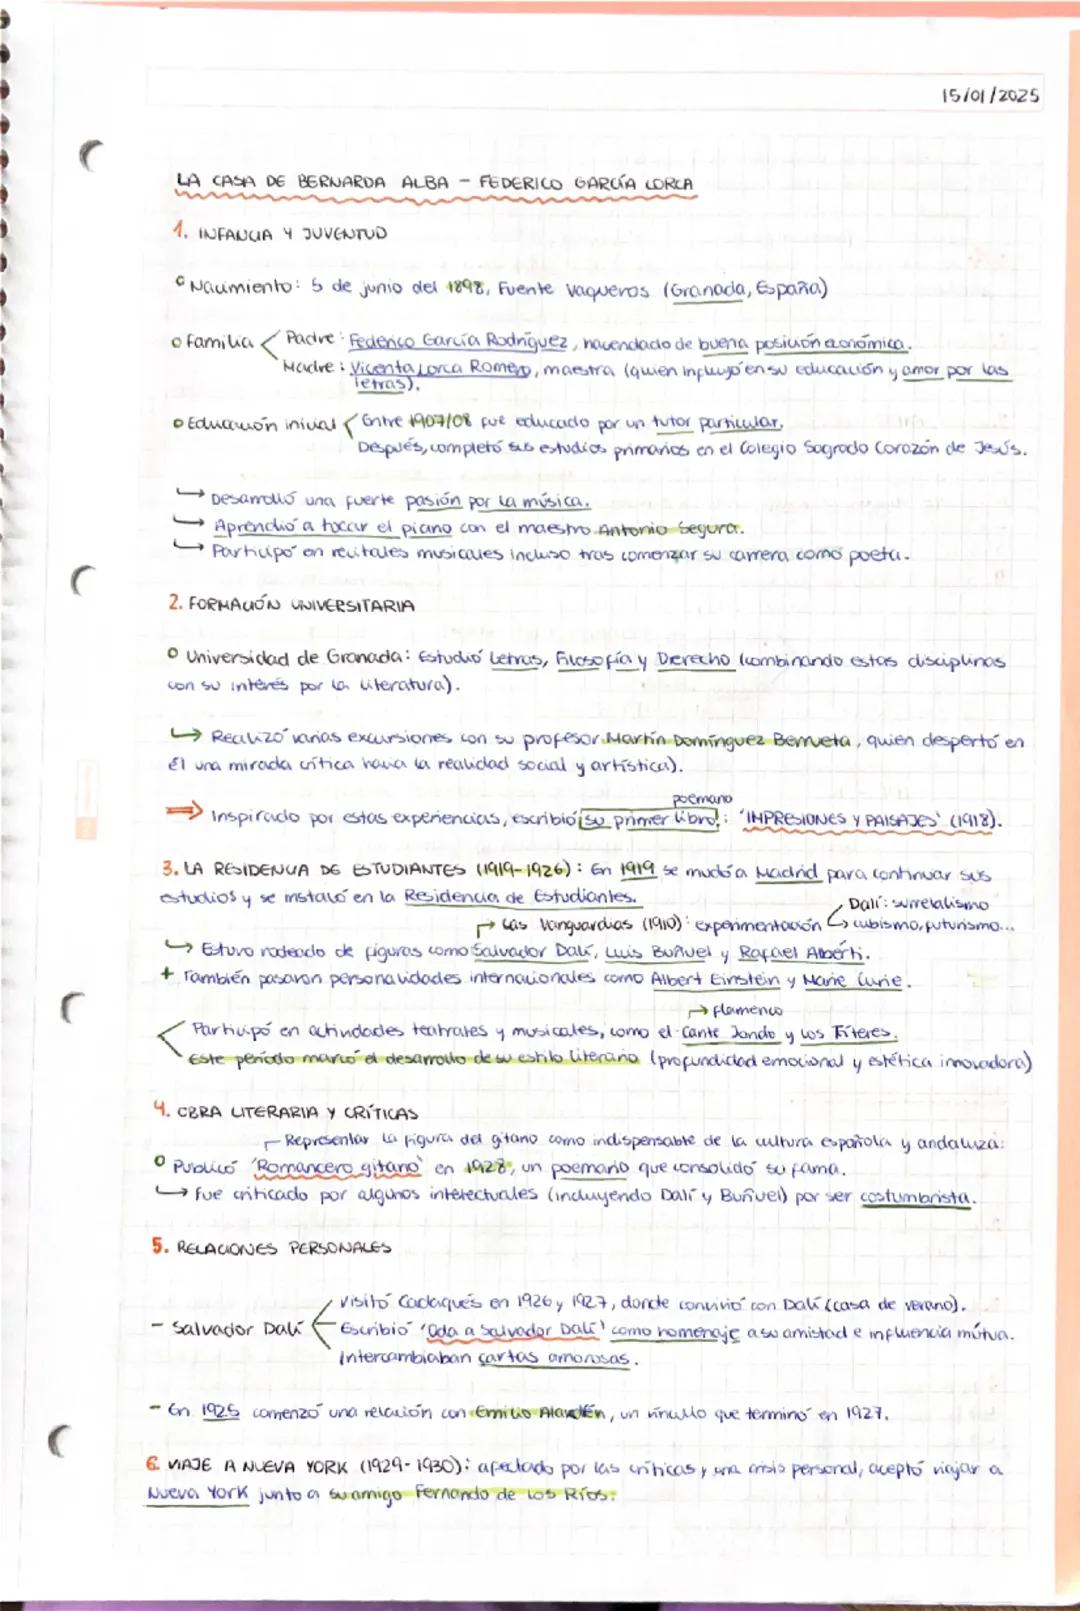 15/01/2025
LA CASA DE BERNARDA ALBA - FEDERICO GARCÍA LORCA
1. INFANCIA Y JUVENTUD
o Nacimiento: 5 de junio del 1898, Fuente Vaqueros (Granada, España)
o Familia < Padre: Federico García Rodríguez, hacendado de buena posición económica.
Madre: Vicenta Lorca Romero, maestra (quien influyó en su educación y amor por las
letras).
o Educación inicial < Entre 1907/08 fue educado por un tutor particular.
Después, completó sus estudios primarios en el Colegio Sagrado Corazón de Jesús.
↳ Desarrolló una fuerte pasión por la música.
↳ Aprendió a toccar el piano con el maestro Antonio Segura.
↳ Participó en recitales musicales incluso tras comenzar su carrera como poeta.
2. FORMACIÓN UNIVERSITARIA
o Universidad de Granada: Estudió Letras, Filosofía y Derecho (combinando estas disciplinas
con su interés por la literatura).
↳ Realizó varias excursiones con su profesor Martín Domínguez Berrueta, quien despertó en
él una mirada crítica hacia la realidad social y artística).
poemario
⇒ Inspirado por estas experiencias, escribió su primer libro: 'IMPRESIONES Y PAISAJES' (1918).
3. LA RESIDENCIA DE ESTUDIANTES (1919-1926): En 1919 se mudó a Madrid para continuar sus
estudios y se instaló en la Residencia de Estudiantes.
Dalí: surrelalismo
↱ Las Vanguardias (1910): experimentación ↳ cubismo, futurismo...
↳ Estuvo rodeado de figuras como Salvador Dalí, Luis Buñuel y Rafael Alberti.
+ También pasaron personalidades internacionales como Albert Einstein y Marie Curie.
→ flamenco
< Participó en actividades teatrales y musicales, como el Cante Jondo y los Títeres.
Este período marcó el desarrollo de su estilo literario (profundidad emocional y estética innovadora)
4. OBRA LITERARIA Y CRÍTICAS
Representar la figura del gitano como indispensable de la cultura española y andaluza.
o Publicó 'Romancero gitano' en 1928, un poemario que consolidó su fama.
↳ Fue criticado por algunos intelectuales (incluyendo Dalí y Buñuel) por ser costumbrista.
5. RELACIONES PERSONALES
Visitó Cadaqués en 1926 y 1927, donde convivió con Dalí (casa de verano).
- Salvador Dalí < Escribió 'Oda a Salvador Dalí' como homenaje a su amistad e influencia mútua.
Intercambiaban cartas amorosas.
- En 1925 comenzó una relación con Emilio Aladrén, un vínculo que terminó en 1927.
6. VIAJE A NUEVA YORK (1929-1930): afectado por las críticas y una crisis personal, aceptó viajar a
Nueva York junto a su amigo Fernando de los Ríos.